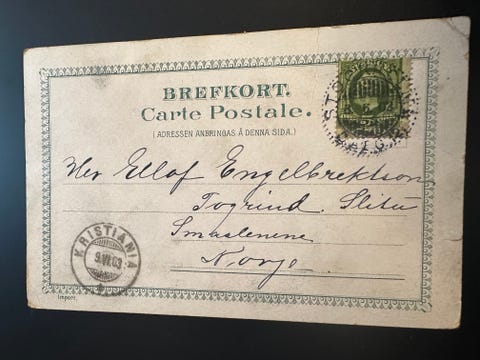 BREFKORT.
Carte Postale.
(ADRESSEN ANBRINGAS Å DENNA SIDA.)
Her Ellof Engelbrektson
Togrind. Slitu
Smaalenene
Norje.
KRISTIANIA
9 VI 03
Import.